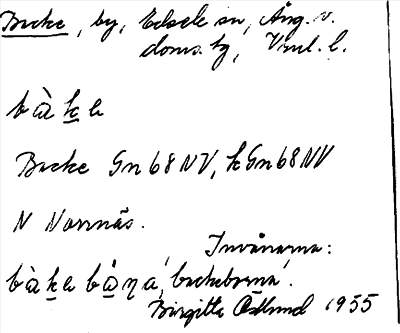 Backe, by, Edsele sn, Ång. v.
doms. tg, Vnl. l.
bàke
Backe Gn 68 NV, k Gn 68 NV
N Norrnäs.
Invånarna:
bàke bàŋa, 'backeborna'.
Birgitta Östlund 1955